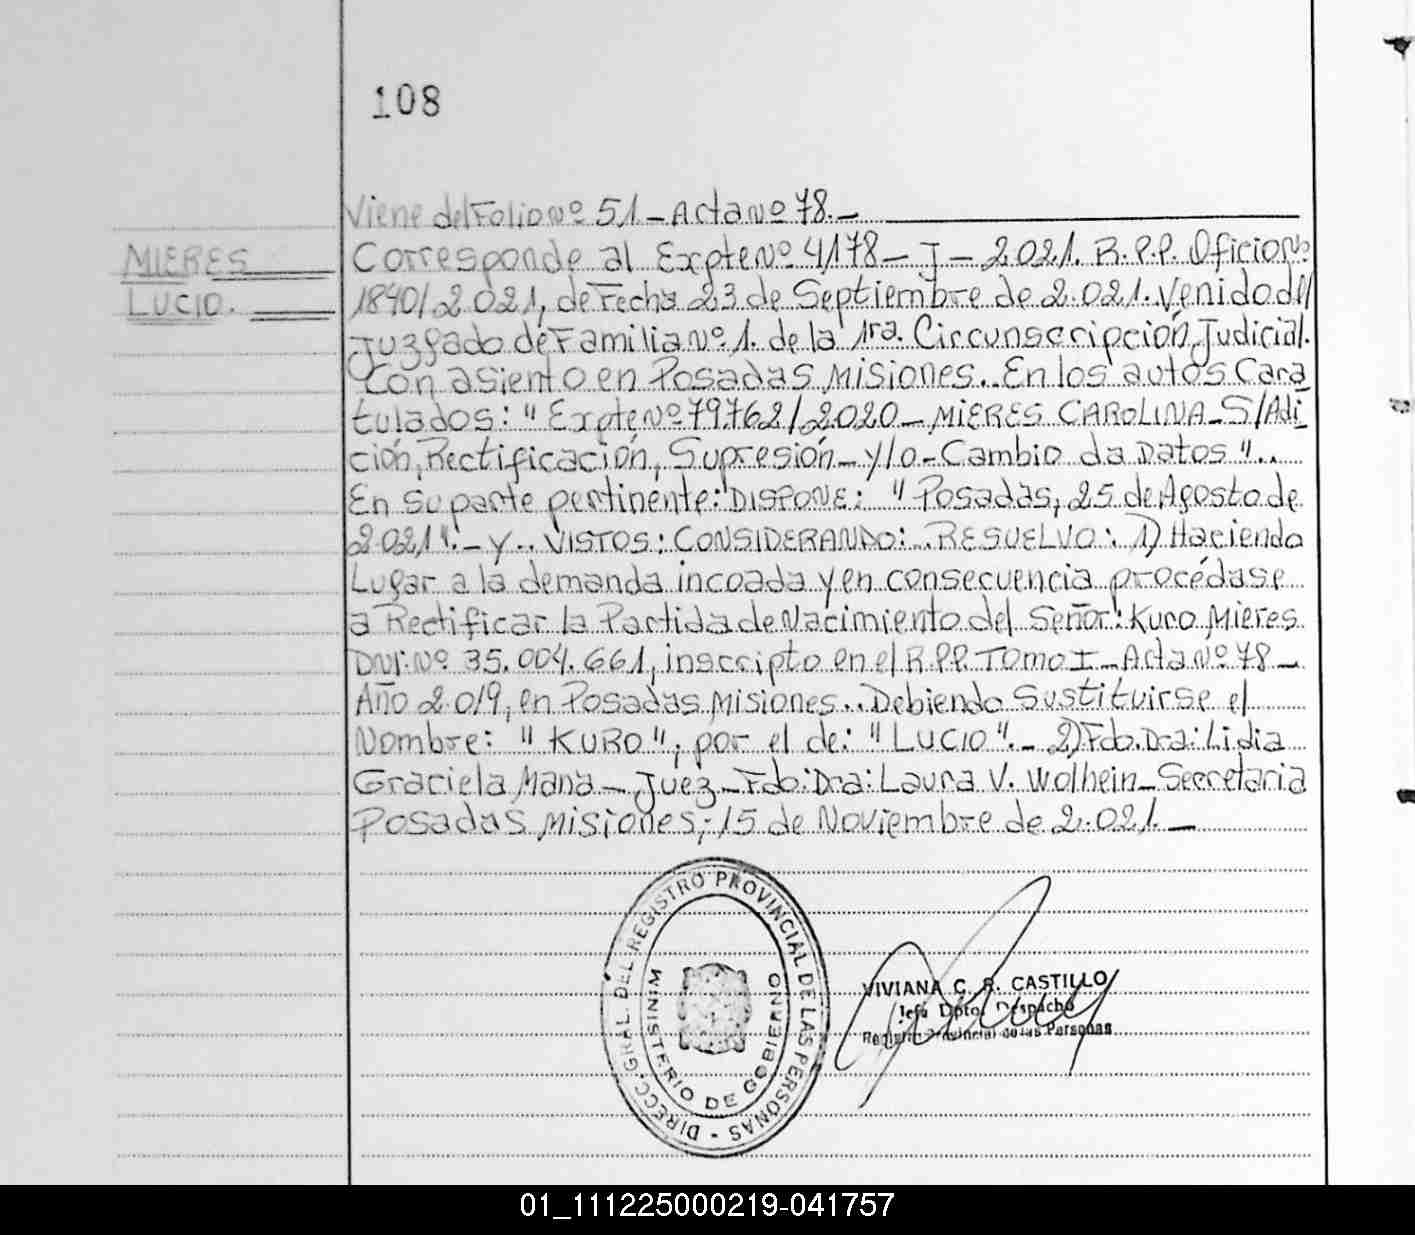 108
Viene del Folio Nº 51 - Acta Nº 78.-
MIERES
LUCIO.
Corresponde al Expte Nº 4178 - J - 2.021. R.P.P. Oficio Nº
1840/2.021, de Fecha 23 de Septiembre de 2.021. Venido del
Juzgado de Familia Nº 1. de la 1ra. Circunscripción Judicial.
Con asiento en Posadas Misiones.. En los autos Cara
tulados: "Expte Nº 79.762/2.020 - MIERES CAROLINA - S/Adi
ción, Rectificación, Supresión - y/o - Cambio da Datos"..
En su parte pertinente: DISPONE: "Posadas, 25 de Agosto de
2.021".- y.. VISTOS: CONSIDERANDO:.. RESUELVO: 1) Haciendo
Lugar a la demanda incoada y en consecuencia procédase
a Rectificar la Partida de Nacimiento del Señor: Kuro Mieres
DNI: Nº 35.004.661, inscripto en el R.P.P. Tomo I - Acta Nº 78 -
Año 2.019, en Posadas Misiones.. Debiendo Sustituirse el
Nombre: "KURO", por el de: "LUCIO".- 2) Fdo. Dra: Lidia
Graciela Mana - Juez - Fdo: Dra: Laura V. Wolhein - Secretaria
Posadas Misiones, 15 de Noviembre de 2.021. -
DIRECC. GRAL. DEL REGISTRO PROVINCIAL DE LAS PERSONAS -
MINISTERIO DE GOBIERNO
VIVIANA C. R. CASTILLO
Jefa Dpto. Despacho
Registro Provincial de las Personas
01_111225000219-041757